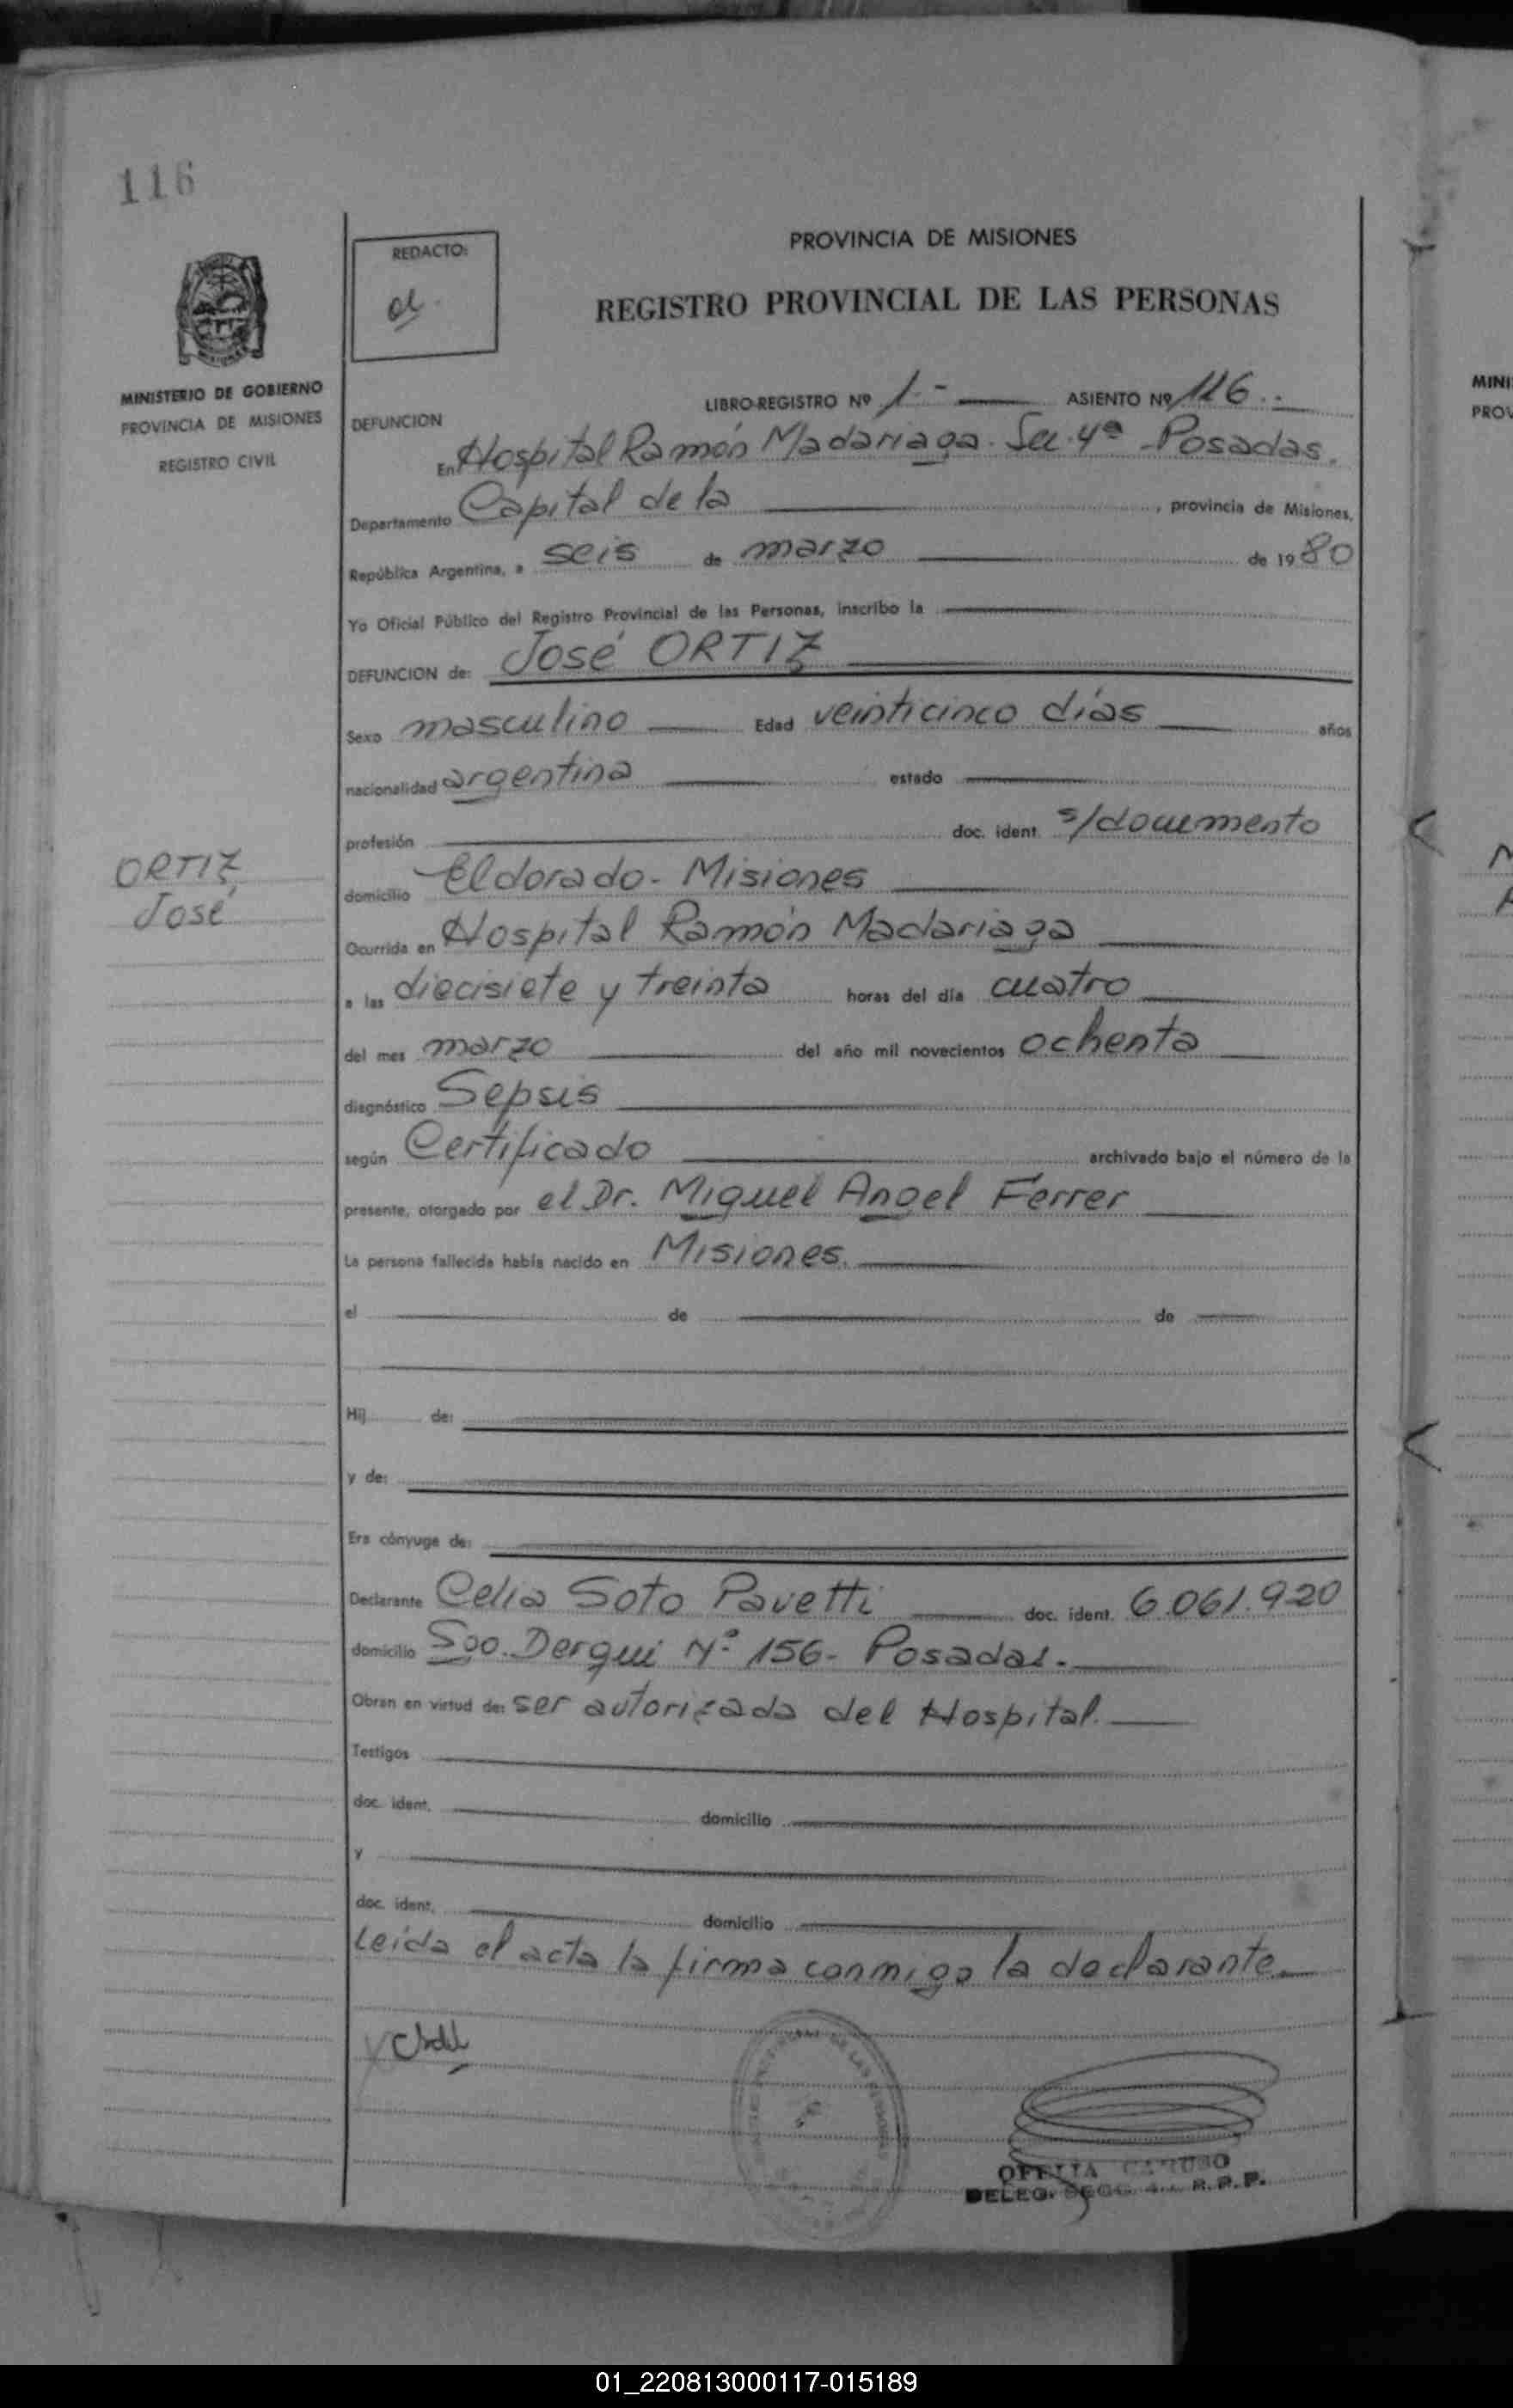 116
REDACTO:
PROVINCIA DE MISIONES
REGISTRO PROVINCIAL DE LAS PERSONAS
MINISTERIO DE GOBIERNO
PROVINCIA DE MISIONES
REGISTRO CIVIL
LIBRO-REGISTRO Nº 1.- ASIENTO Nº 116.-
DEFUNCION
En Hospital Ramón Madariaga. Sec. 4ª - Posadas.
Departamento Capital de la , provincia de Misiones,
República Argentina, a seis de marzo de 1980
Yo Oficial Público del Registro Provincial de las Personas, inscribo la
DEFUNCION de: José ORTIZ
Sexo masculino Edad veinticinco días años
nacionalidad argentina estado
profesión doc. ident. s/documento
ORTIZ,
José
domicilio Eldorado - Misiones
Ocurrida en Hospital Ramón Madariaga
a las diecisiete y treinta horas del día cuatro
del mes marzo del año mil novecientos ochenta
diagnóstico Sepsis
según Certificado archivado bajo el número de la
presente, otorgado por el Dr. Miguel Angel Ferrer
La persona fallecida había nacido en Misiones.
el de de
Hij de:
y de:
Era cónyuge de:
Declarante Celia Soto Pavetti doc. ident. 6.061.920
domicilio Sgo. Derqui Nº 156 - Posadas.-
Obran en virtud de: ser autorizada del Hospital.
Testigos
doc. ident. domicilio
y
doc. ident. domicilio
Leída el acta la firma conmigo la declarante.
OFELIA CARUSO
DELEG. SECC. 4a. R.P.P.
MINI
PROV
01_220813000117-015189